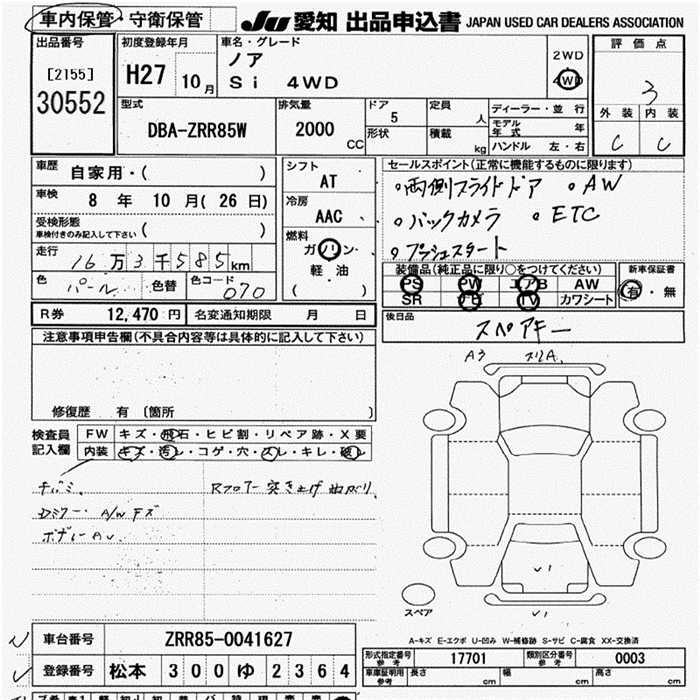 車内保管・守衛保管 JU 愛知 出品申込書 JAPAN USED CAR DEALERS ASSOCIATION
出品番号 初度登録年月 車名・グレード 評価点
[2155] H27 10月 ノア 2WD
30552 Si 4WD 4WD 3
型式 排気量 ドア 定員 ディーラー・並行 外装 内装
DBA-ZRR85W 2000 CC 5 人 モデル年式 年 C C
形状 積載 kg ハンドル 左・右
車歴 自家用・( ) シフト AT セールスポイント(正常に機能するものに限ります)
車検 8年10月(26日) 冷房 AAC 。両側スライドドア 。AW
受検形態 車検付きのみ記入して下さい ( ) 。バックカメラ 。ETC
走行 16万3千585km 燃料 ガソリン・軽油 ( ) 。プッシュスタート
色 パール 色替 色コード 070
装備品(純正品に限り○をつけてください) 新車保証書
PS PW エアB AW 有・無
SR ナビ TV カワシート
R券 12,470円 名変通知期限 月 日 後日品 スペアキー
注意事項申告欄(不具合内容等は具体的に記入して下さい)
修復歴 有 〔箇所 〕
A3
検査員記入欄 FW キズ・飛石・ヒビ割・リペア跡・X要
内装 キズ・汚レ・コゲ・穴・スレ・キレ・破レ
Rフロアー突き上げ
Dミラー・A/Wキズ
√1
スペア √1
A-キズ E-エクボ U-凹み W-補修跡 S-サビ C-腐食 XX-交換済
車台番号 ZRR85-0041627 形式指定番号 参考 17701 類別区分番号 参考 0003
登録番号 松本 300 ゆ 2364 車庫証明用 参考 長さ cm 幅 cm 高さ cm